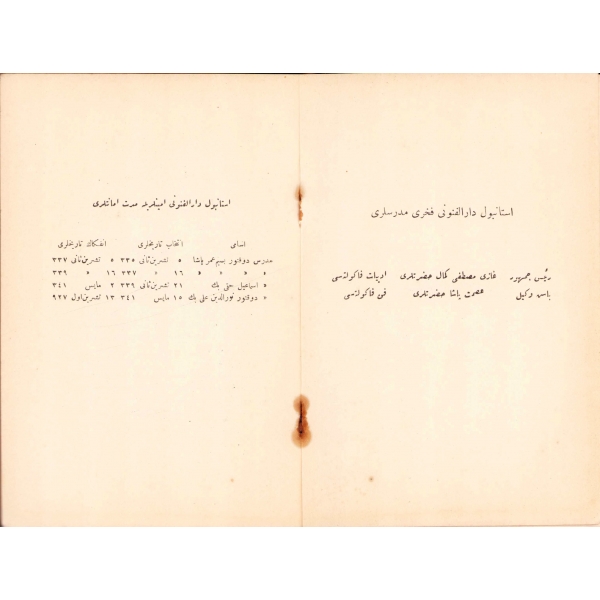 استانبول دارالفنونی فخری مدرسلری
رئیس جمهور غازی مصطفی کمال حضرتلری ادبیات فاکولته‌سی
باش وکیل عصمت پاشا حضرتلری فن فاکولته‌سی
استانبول دارالفنونی امینلریله مدت امانتلری
اسامی انتخاب تاریخلری انفکاک تاریخلری
مدرس دوقتور بسیم عمر پاشا ٥ تشرین‌ثانی ٣٣٥ ٥ تشرین‌ثانی ٣٣٧
» » » » ١٦ » ٣٣٧ ١٦ » ٣٣٩
» اسماعیل حقی بك ٢١ تشرین‌ثانی ٣٣٩ ٢ مایس ٣٤١
» دوقتور نورالدین علی بك ١٥ مایس ٣٤١ ١٣ تشرین‌اول ٩٢٧